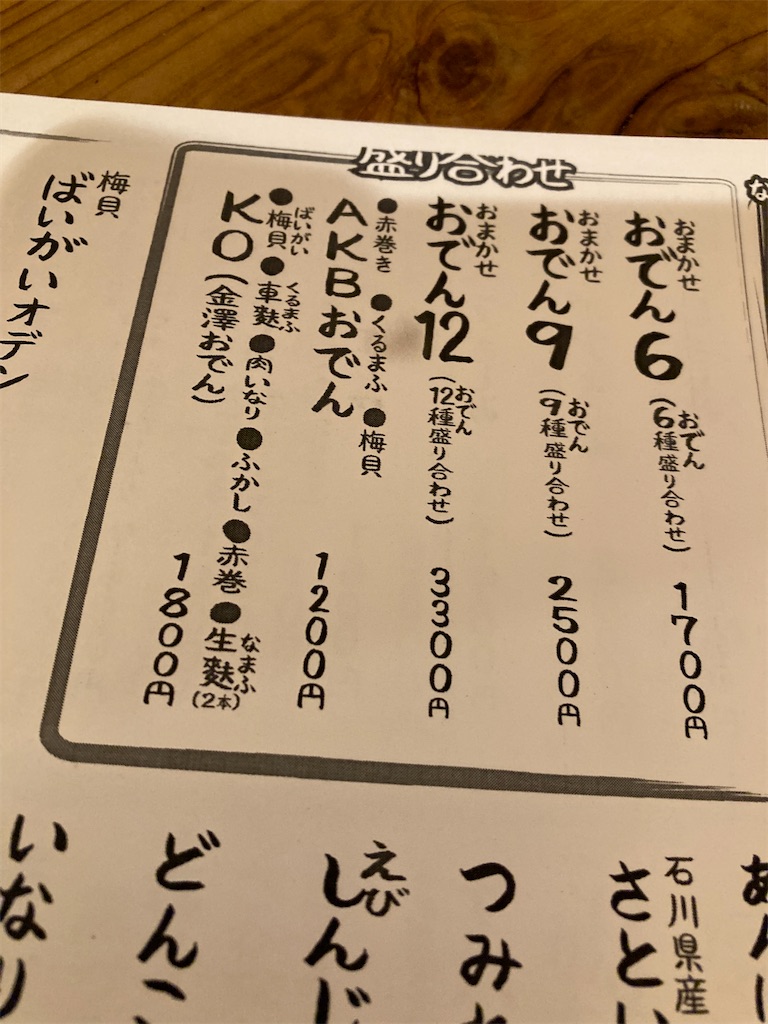 盛り合わせ
おまかせ
おでん6
おでん
(6種盛り合わせ)
1700円
おまかせ
おでん9
おでん
(9種盛り合わせ)
2500円
おまかせ
おでん12
おでん
(12種盛り合わせ)
3300円
●赤巻き ●くるまふ ●梅貝
AKBおでん
1200円
ばいがい くるまふ なまふ
●梅貝●車麩●肉いなり●ふかし●赤巻●生麩(2本)
KO(金澤おでん)
1800円
梅貝
ばいがいオデン
な
石川県産
さとい
つみ
えび
しんじ
どんこ
いなり